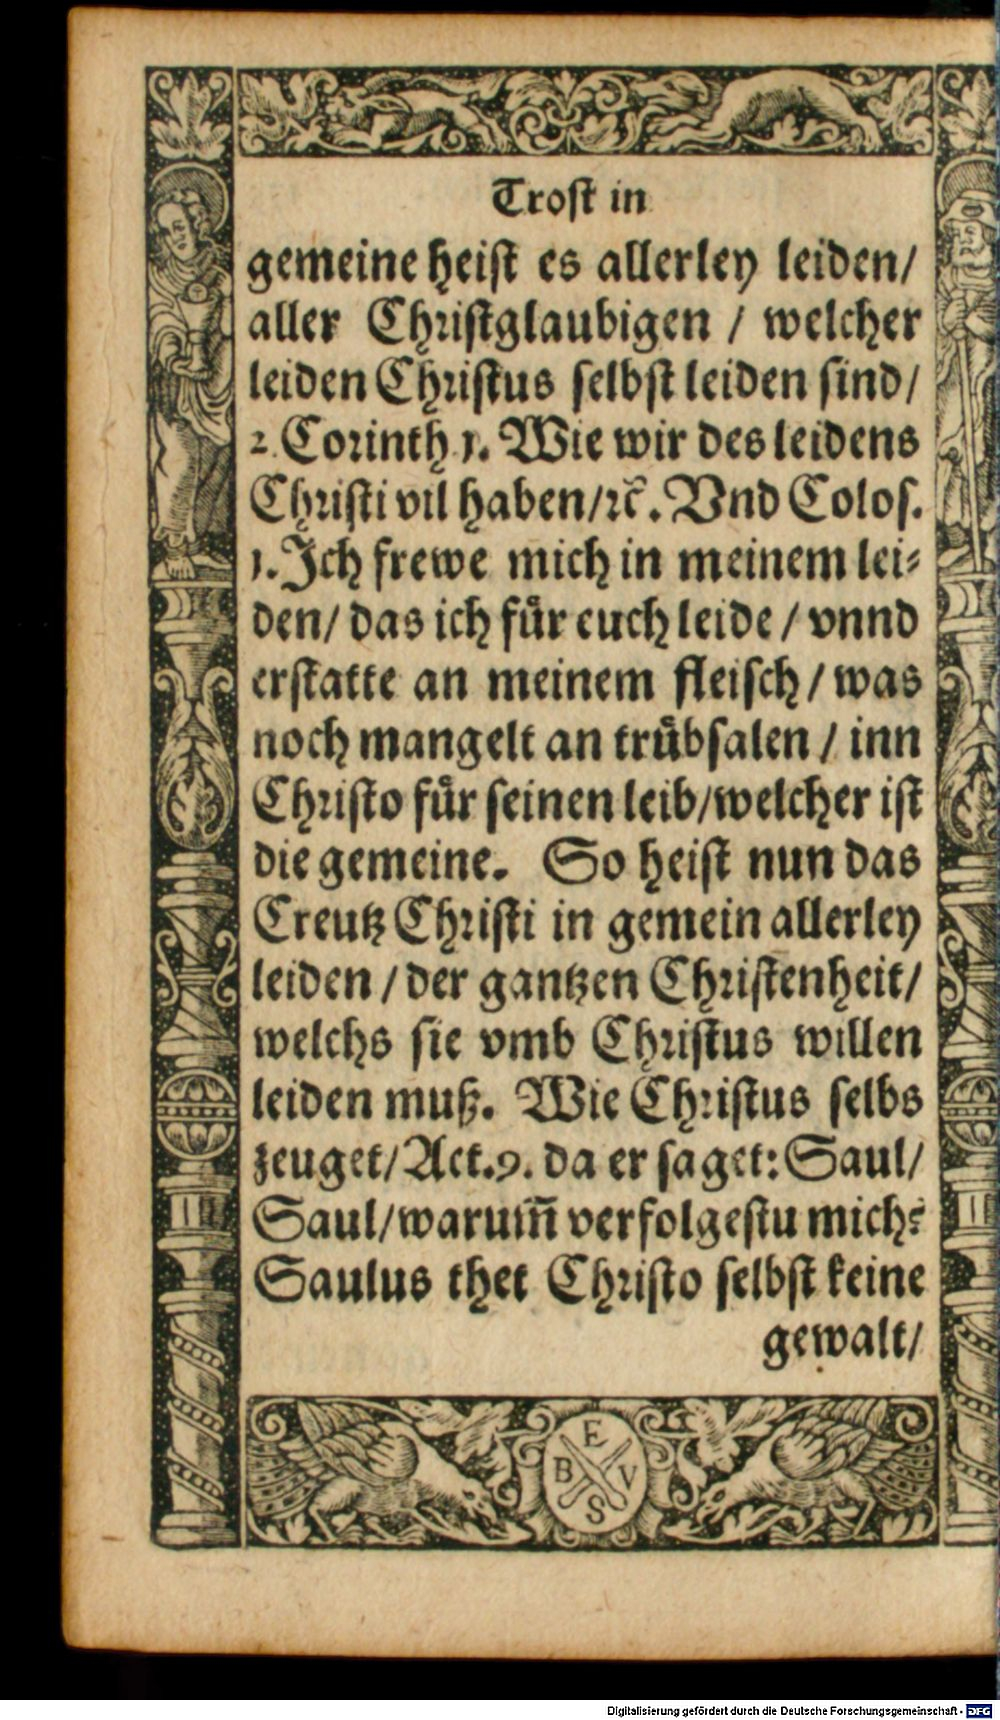 Troſt in
gemeine heiſt es allerley leiden/
aller Chriſtglaubigen / welcher
leiden Chriſtus ſelbſt leiden ſind/
2. Corinth 1. Wie wir des leidens
Chriſti vil haben/ꝛc̃. Vnd Coloſ.
1. Ich frewe mich in meinem lei⸗
den/ das ich fuͤr euch leide / vnnd
erſtatte an meinem fleiſch/ was
noch mangelt an truͤbſalen / inn
Chriſto fuͤr ſeinen leib/welcher iſt
die gemeine. So heiſt nun das
Creutz Chriſti in gemein allerley
leiden / der gantzen Chriſtenheit/
welchs ſie vmb Chriſtus willen
leiden muß. Wie Chriſtus ſelbs
zeuget/ Act. 9. da er ſaget: Saul/
Saul/warum̃ verfolgeſtu mich?
Saulus thet Chriſto ſelbſt keine
gewalt/
E
B V
S
Digitalisierung gefördert durch die Deutsche Forschungsgemeinschaft - DFG